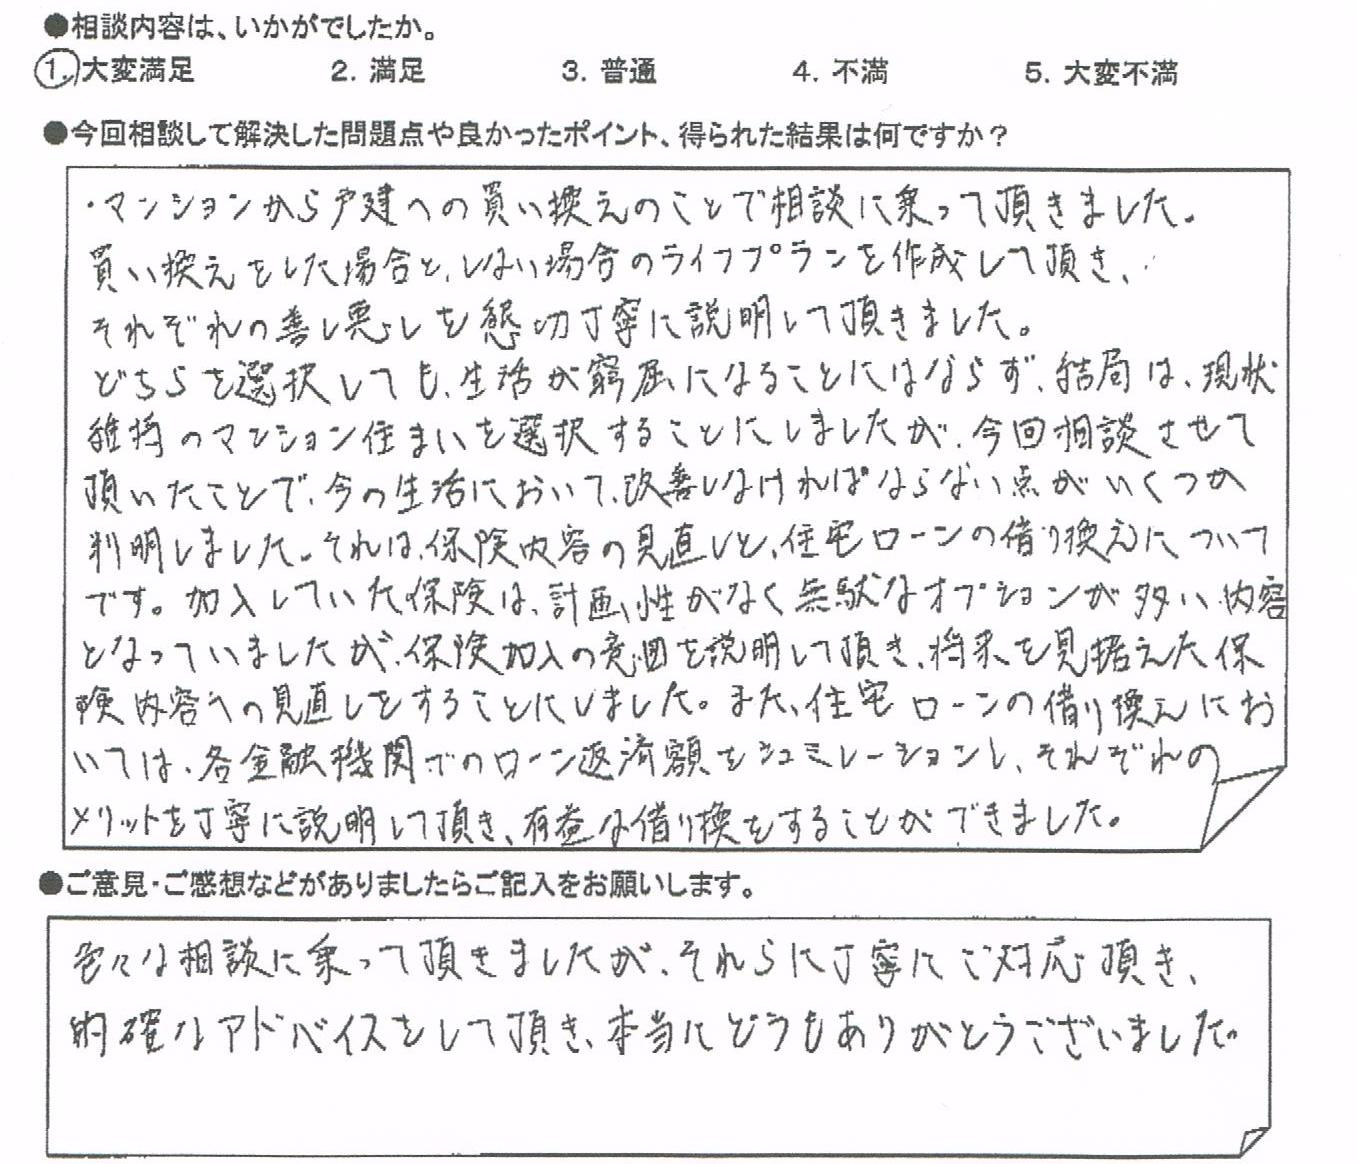 ●相談内容は、いかがでしたか。
1. 大変満足 2. 満足 3. 普通 4. 不満 5. 大変不満
●今回相談して解決した問題点や良かったポイント、得られた結果は何ですか？
・マンションから戸建への買い換えのことで相談に乗って頂きました。
買い換えをした場合と、しない場合のライフプランを作成して頂き、
それぞれの善し悪しを懇切丁寧に説明して頂きました。
どちらを選択しても、生活が窮屈になることにはならず、結局は、現状
維持のマンション住まいを選択することにしましたが、今回相談させて
頂いたことで、今の生活において、改善しなければならない点がいくつか
判明しました。それは、保険内容の見直しと、住宅ローンの借り換えについて
です。加入していた保険は、計画性がなく無駄なオプションが多い内容
となっていましたが、保険加入の意図を説明して頂き、将来を見据えた保
険内容への見直しをすることにしました。また、住宅ローンの借り換えにお
いては、各金融機関でのローン返済額をシュミレーションし、それぞれの
メリットを丁寧に説明して頂き、有益な借り換をすることができました。
●ご意見・ご感想などがありましたらご記入をお願いします。
色々な相談に乗って頂きましたが、それらに丁寧にご対応頂き、
明確なアドバイスをして頂き、本当にどうもありがとうございました。